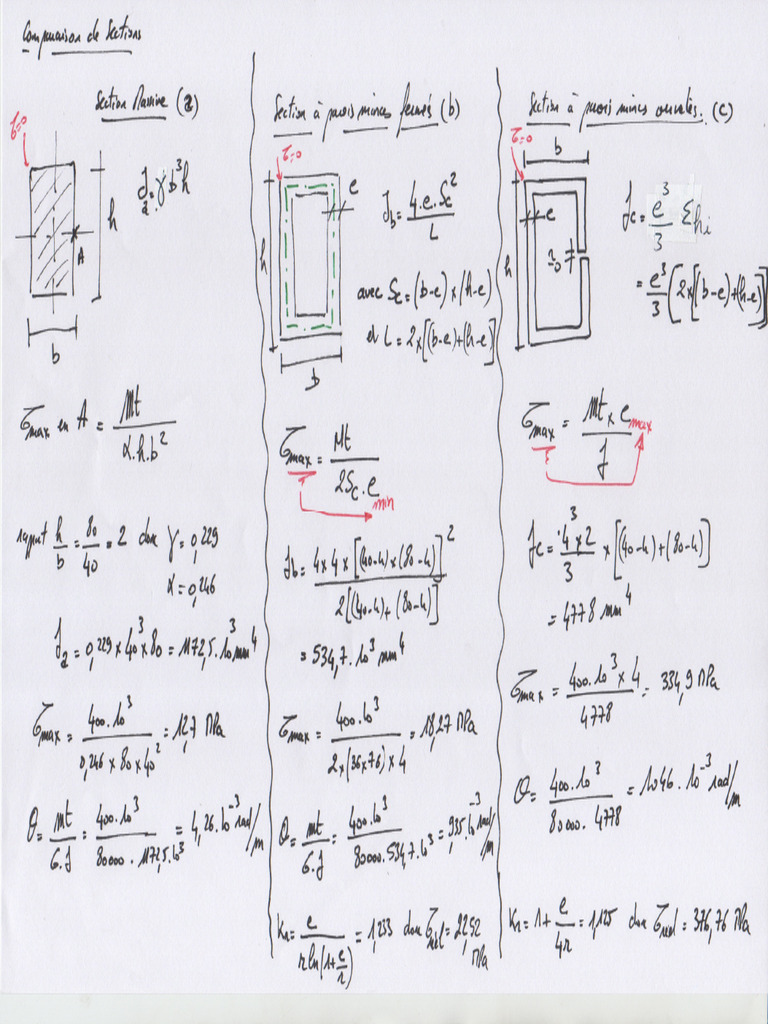 Comparaison de Sections
Section Massive (a)
τ=0
h
A
b
J_a = γ b³h
τ_max en A = Mt / α.h.b²
rapport h/b = 80/40 = 2 donc γ = 0,229
α = 0,246
J_a = 0,229 × 40³ × 80 = 1172,5.10³ mm⁴
τ_max = 400.10³ / 0,246 × 80 × 40² = 12,7 MPa
θ = mt / G.J = 400.10³ / 80000.1172,5.10³ = 4,26.10⁻³ rad/m
Section à parois minces fermés (b)
τ=0
e
h
b
J_b = 4.e.Sc² / L
avec Sc = (b-e) × (h-e)
et L = 2×[(b-e)+(h-e)]
τ_max = Mt / 2Sc.e min
J_b = 4×4×[(40-4)×(80-4)]² / 2[(40-4)+(80-4)]
= 534,7.10³ mm⁴
τ_max = 400.10³ / 2×(36×76)×4 = 18,27 MPa
θ = mt / G.J = 400.10³ / 80000.534,7.10³ = 9,35.10⁻³ rad/m
Kr = e / r ln(1+e/r) = 1,233 donc τ_réel = 22,52 MPa
Section à parois minces ouvertes. (c)
τ=0
b
e
h
≃0
J_c = e³/3 Σhi
= e³/3 (2×[(b-e)+(h-e)]
τ_max = Mt × e max / J
J_c = 4³×2 / 3 × [(40-4)+(80-4)]
= 4778 mm⁴
τ_max = 400.10³ × 4 / 4778 = 334,9 MPa
θ = 400.10³ / 80000.4778 = 1046.10⁻³ rad/m
Kr = 1 + e/4r = 1,125 donc τ_réel = 376,76 MPa